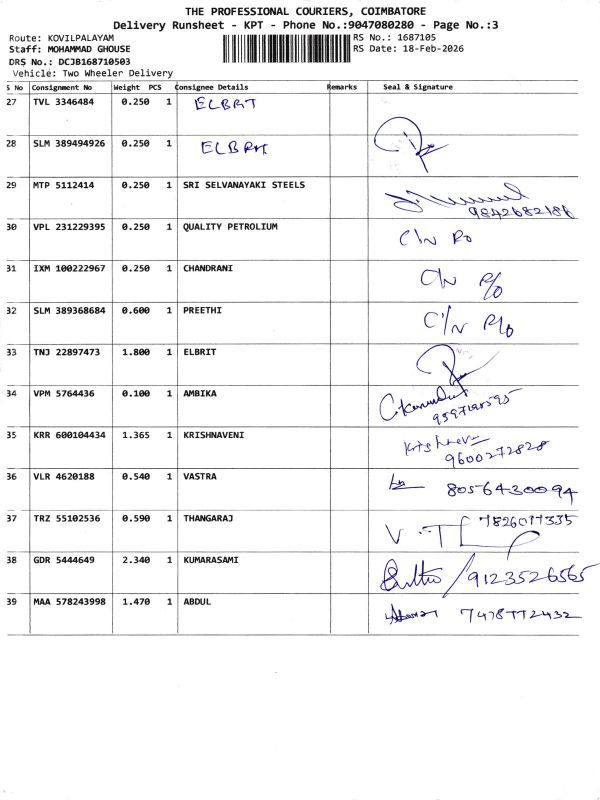 THE PROFESSIONAL COURIERS, COIMBATORE
Delivery Runsheet - KPT - Phone No.:9047080280 - Page No.:3
Route: KOVILPALAYAM RS No.: 1687105
Staff: MOHAMMAD GHOUSE RS Date: 18-Feb-2026
DRS No.: DCJB168710503
Vehicle: Two Wheeler Delivery
S No Consignment No Weight PCS Consignee Details Remarks Seal & Signature
27 TVL 3346484 0.250 1 ELBRIT
28 SLM 389494926 0.250 1 ELBRIT
29 MTP 5112414 0.250 1 SRI SELVANAYAKI STEELS 9842682186
30 VPL 231229395 0.250 1 QUALITY PETROLIUM C/N Ro
31 IXM 100222967 0.250 1 CHANDRANI C/N R/o
32 SLM 389368684 0.600 1 PREETHI C/N R/o
33 TNJ 22897473 1.800 1 ELBRIT
34 VPM 5764436 0.100 1 AMBIKA
35 KRR 600104434 1.365 1 KRISHNAVENI 9600272828
36 VLR 4620188 0.540 1 VASTRA 8056430094
37 TRZ 55102536 0.590 1 THANGARAJ
38 GDR 5444649 2.340 1 KUMARASAMI 9123526565
39 MAA 578243998 1.470 1 ABDUL